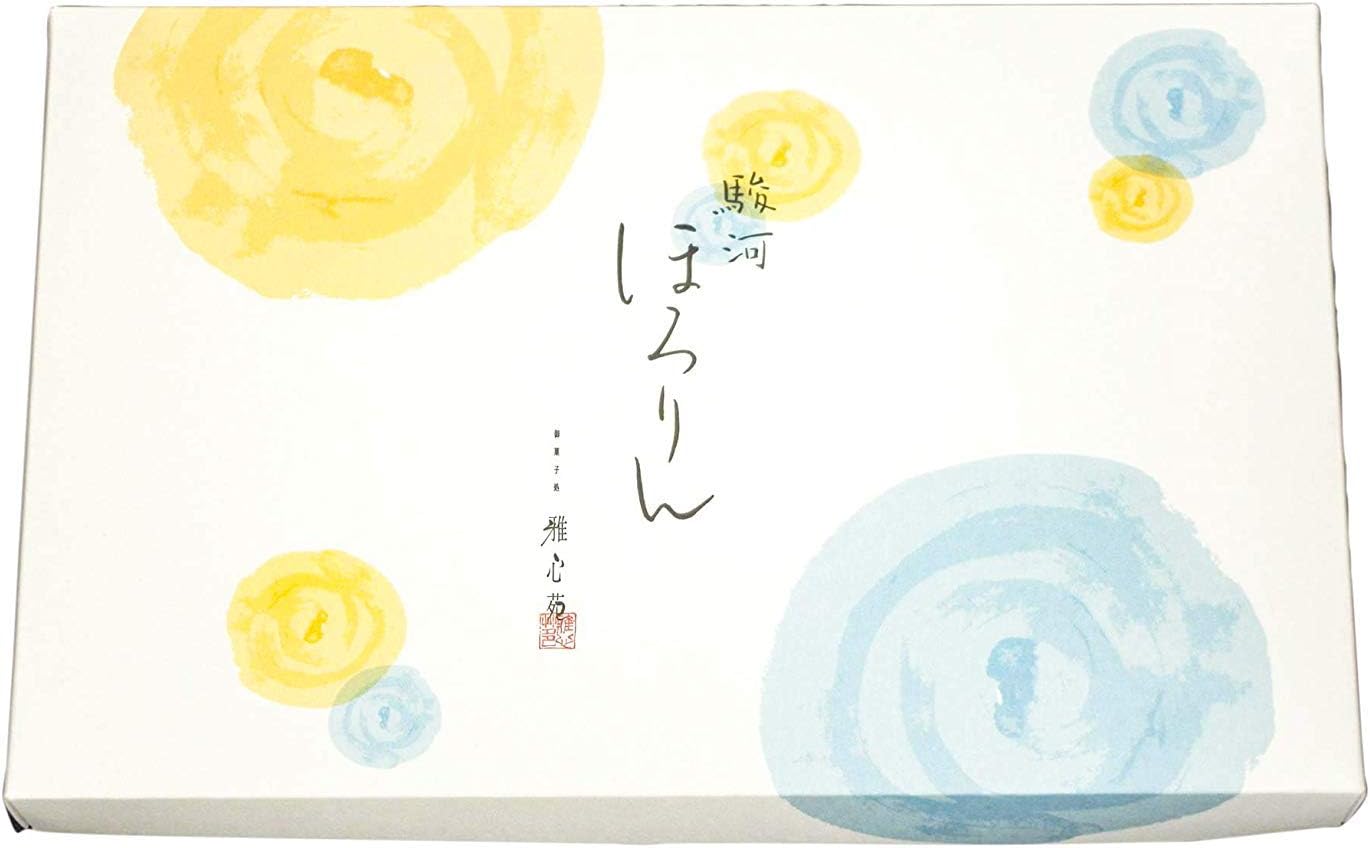 駿河
ほろりん
御菓子処
雅心苑